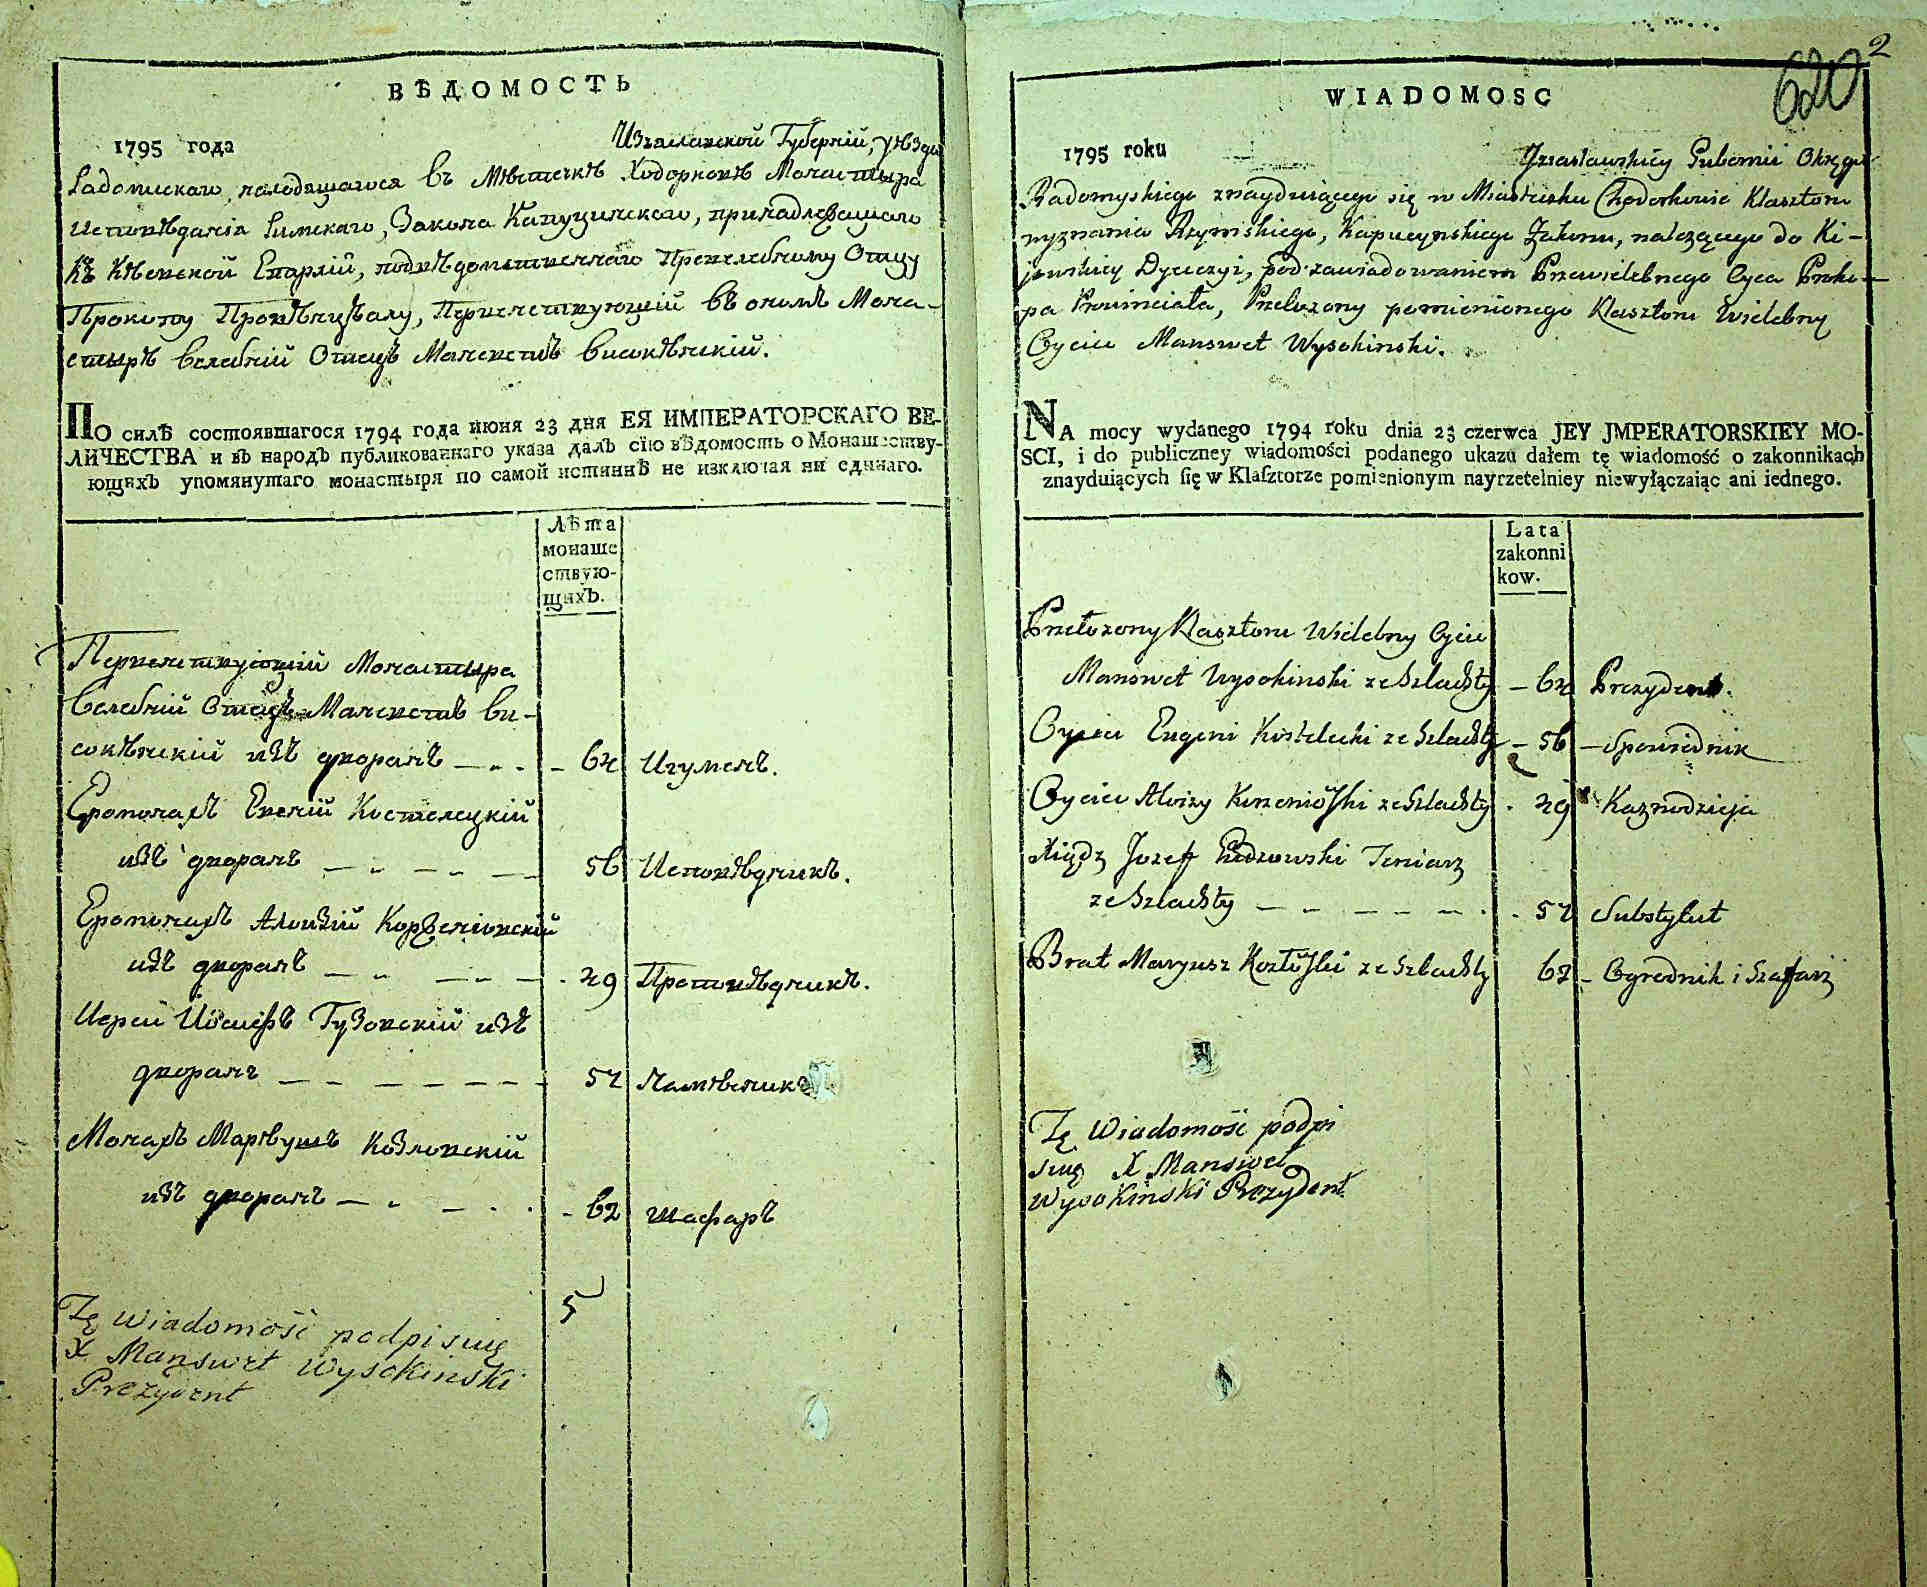 ВѢДОМОСТЬ
1795 года Изъяславской Губернїй, уѣзда
Радомискаго, находящагося въ Мѣстечкѣ Ходорковѣ Монастыра
исповѣданїя Римскаго, Закона Капуцинскаго, принадлежащаго
къ Кїевской Епархїй, подвѣдомственнаго Превелебному Отцу
Прокопу Провѣнцѣалу, Первенствующїй въ ономъ Мона-
стырѣ Велебнїй Отецъ Мансветъ Високѣнскїй.
ПО силѣ состоявшагося 1794 года июня 23 дня ЕЯ ИМПЕРАТОРСКАГО ВЕ-
ЛИЧЕСТВА и въ народъ публикованнаго указа далъ сїю вѣдомость о Монашеству-
ющихъ упомянутаго монастыря по самой истиннѣ не изключая ни единаго.
Лѣта
монаше
ствую-
щихъ.
Первенствующїй Монастыра
Велебнїй Отецъ Мансветъ Ви-
сокѣнскїй изъ дворанъ — 64 Игуменъ.
Еромонахъ Евенїй Костелецкїй
изъ дворанъ — 56 Исповѣдникъ.
Еромонахъ Алоизїй Корженїовскїй
изъ дворанъ — 29 Проповѣдникъ.
Иерей Иосифъ Гузовскїй изъ
дворанъ — 52 Намѣсникъ
Монахъ Марѣушъ Козловскїй
изъ дворанъ — 62 шафаръ
5
Tę Wiadomość podpisuię
X Manswet Wysokinski
Prezydent
2
620
WIADOMOSC
1795 roku Izasławskiey Gubernii Okręgu
Radomyskiego znayduiącego się w Miasteczku Chodorkowie Klasztoru
wyznania Rzymskiego, Kapucynskiego Zakonu, należącego do Ki-
jowskiey Dyecezyi, pod zawiadowaniem Przewielebnego Oyca Proko-
pa Prowinciała, Przełozony pomienionego Klasztoru Wielebny
Oyciec Manswet Wysokinski.
NA mocy wydanego 1794 roku dnia 23 czerwca JEY JMPERATORSKIEY MO-
SCI, i do publiczney wiadomości podanego ukazu dałem tę wiadomość o zakonnikach
znayduiących się w Klasztorze pomienionym nayrzetelniey niewyłączaiąc ani iednego.
Lata
zakonni
kow.
Przełozony Klasztoru Wielebny Oyciec
Manswet Wysokinski ze Szlachty — 64 Prezydent.
Oyciec Eugeni Kostelecki ze Szlachty — 56 — Spowiednik
Oyciec Aloizy Korzeniowski ze Szlachty 29 Kaznodzieja
Xiądz Jozef
ze Szlachty — 52 Substytut
Brat Maryusz Kozłowski ze Szlachty 62 — Ogrodnik i Szafarz
Tę Wiadomość podpi
suię X Manswet
Wysokinski Prezydent